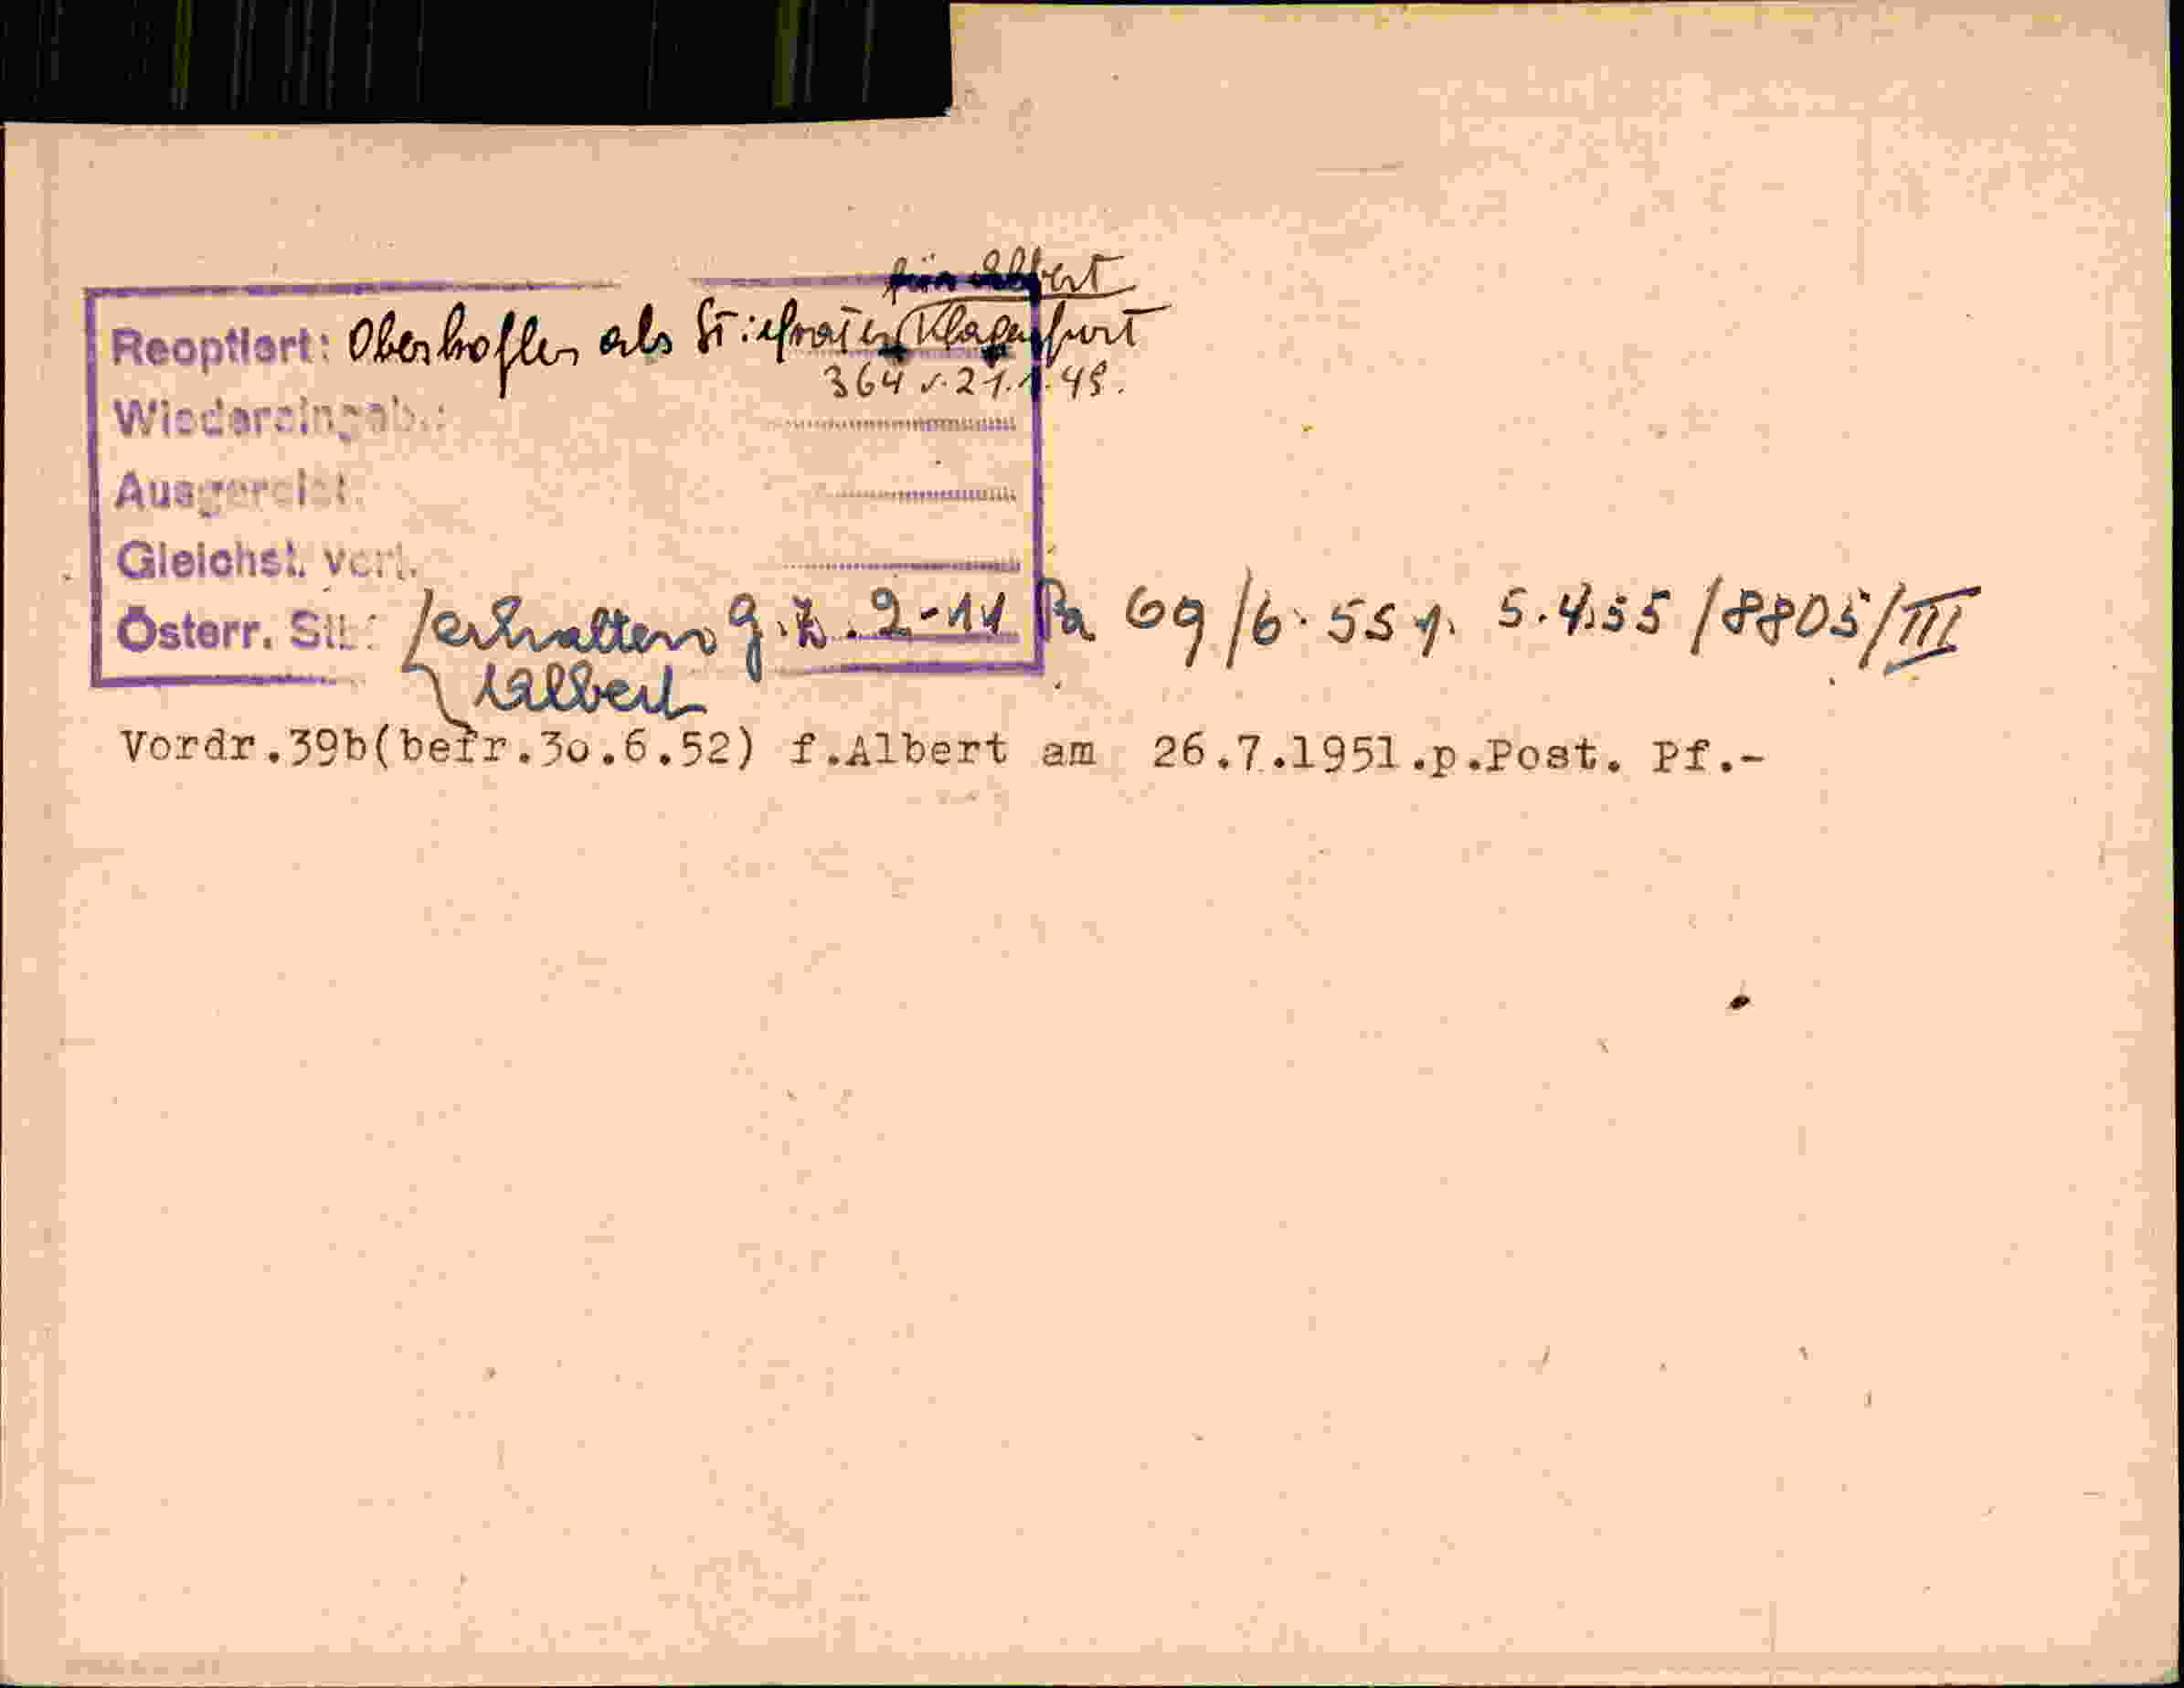 für Albert
Reoptiert: Oberhofler als Stiefvater Klagenfurt
364 v. 21.1.49.
Wiedereingeb.:
Ausgereist:
Gleichst. verl.
Österr. Stb: erhalten g.Z. 2-11 Pa 69/6-55 v. 5.4.55 /8805/III
Albert
Vordr.39b(befr.3o.6.52) f.Albert am 26.7.1951.p.Post. Pf.-